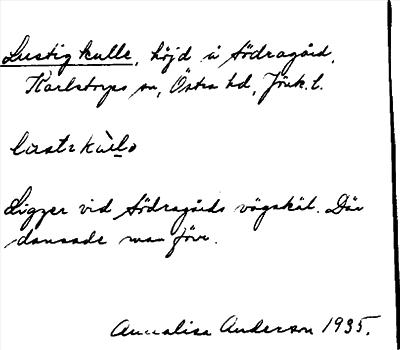 Lustig kulle, höjd å Södragård,
Karlstorps sn, Östra hd, Jönk. l.
Ligger vid Södragårds vägskäl. Där
dansade man förr.
Annalisa Anderson 1935.